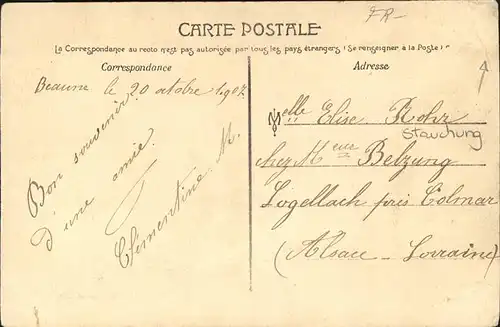 FR-
CARTE POSTALE
La Correspondance au recto n'est pas autorisée par tous les pays étrangers (Se renseigner à la Poste)
Correspondance
Adresse
Beaune le 20 octobre 1907
Bon souvenir
d'une amie.
Clémentine. M.
Melle Elise Rohr
Stauchung
chez Meur Belzung
Logelbach près Colmar
(Alsace-Lorraine)